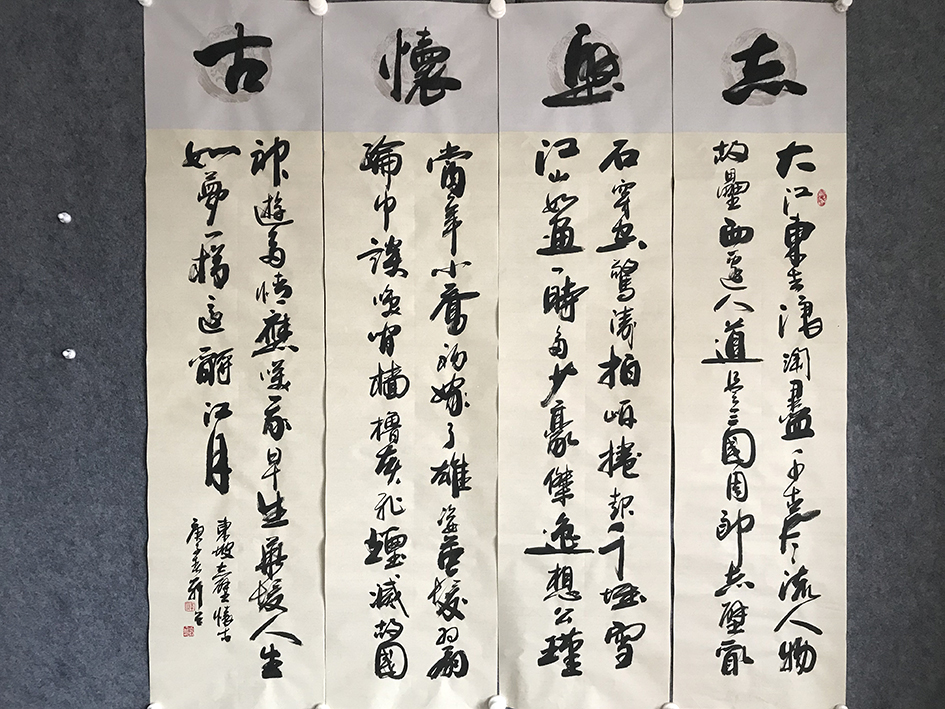 赤
大江東去浪淘盡千古风流人物
故壘西邊人道是三國周郎赤壁亂
壁
石穿空驚濤拍岸捲起千堆雪
江山如畫一時多少豪傑遥想公瑾
懷
當年小喬初嫁了雄姿英發羽扇
綸巾談笑間檣櫓灰飛煙滅故國
古
神遊多情應笑我早生華髮人生
如夢一樽還酹江月
東坡赤壁懷古
庚子春